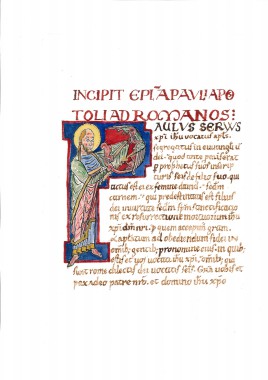 INCIPIT EPLA PAVLI APO
TOLI AD ROMANOS:
PAULUS SERVUS
xpi ihu vocatus apls
segregatus in euuangeliu
dei quod ante promiserat
p prophetas suos in scrip
turis scis de filio suo, qui
factus est ei ex semine david secdm
carnem, qui predestinatus est filius
dei in virtute secdm spm scificatio
nis ex resurrectione mortuorum ihu
xpi dni nri, p quem accepim gram
& aplatum ad obediendum fidei in
omib; gentib; pro nomine eius, in quib;
estis et vos vocati ihu xpi, omib; qui
sunt rome dilectis dei vocatis scis. Gra vobis et
pax a deo patre nro, et domino ihu xpo